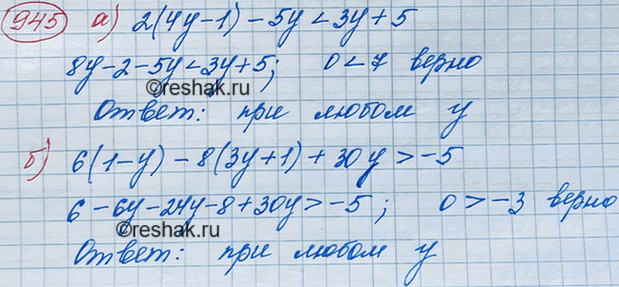 945 а) 2(4y-1)-5y<3y+5
8y-2-5y<3y+5; 0<7 верно
©reshak.ru
Ответ: при любом y
б) 6(1-y)-8(3y+1)+30y>-5
6-6y-24y-8+30y>-5; 0>-3 верно
©reshak.ru
Ответ: при любом y